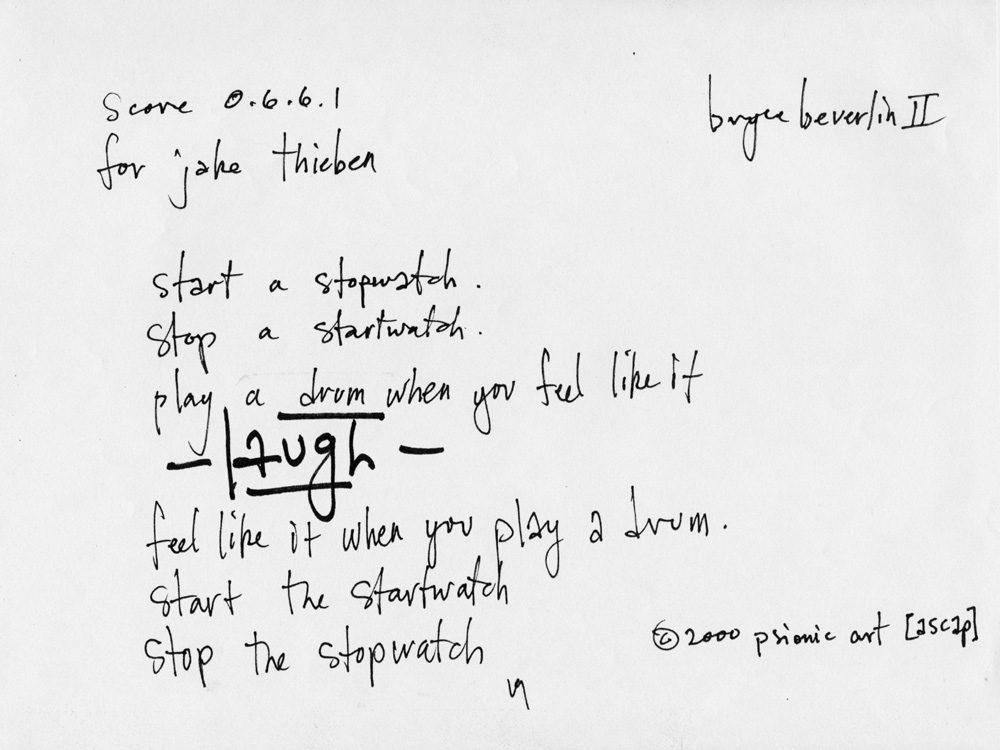 score 0.6.6.1
for jake thieben
bryce beverlin II
start a stopwatch.
stop a startwatch.
play a drum when you feel like it
— laugh —
feel like it when you play a drum.
start the startwatch
stop the stopwatch
© 2000 psionic art [ascap]